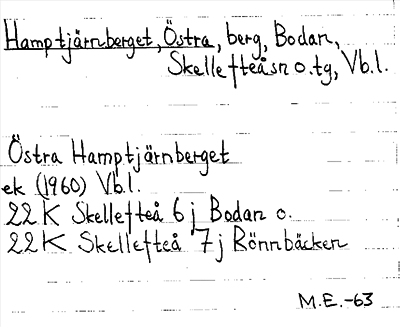 Hamptjärnberget, Östra, berg, Bodan,
Skellefteåsn o. tg, Vb.l.
Östra Hamptjärnberget
ek (1960) Vb.l.
22 K Skellefteå 6 j Bodan o.
22 K Skellefteå 7 j Rönnbäcken
M.E.-63